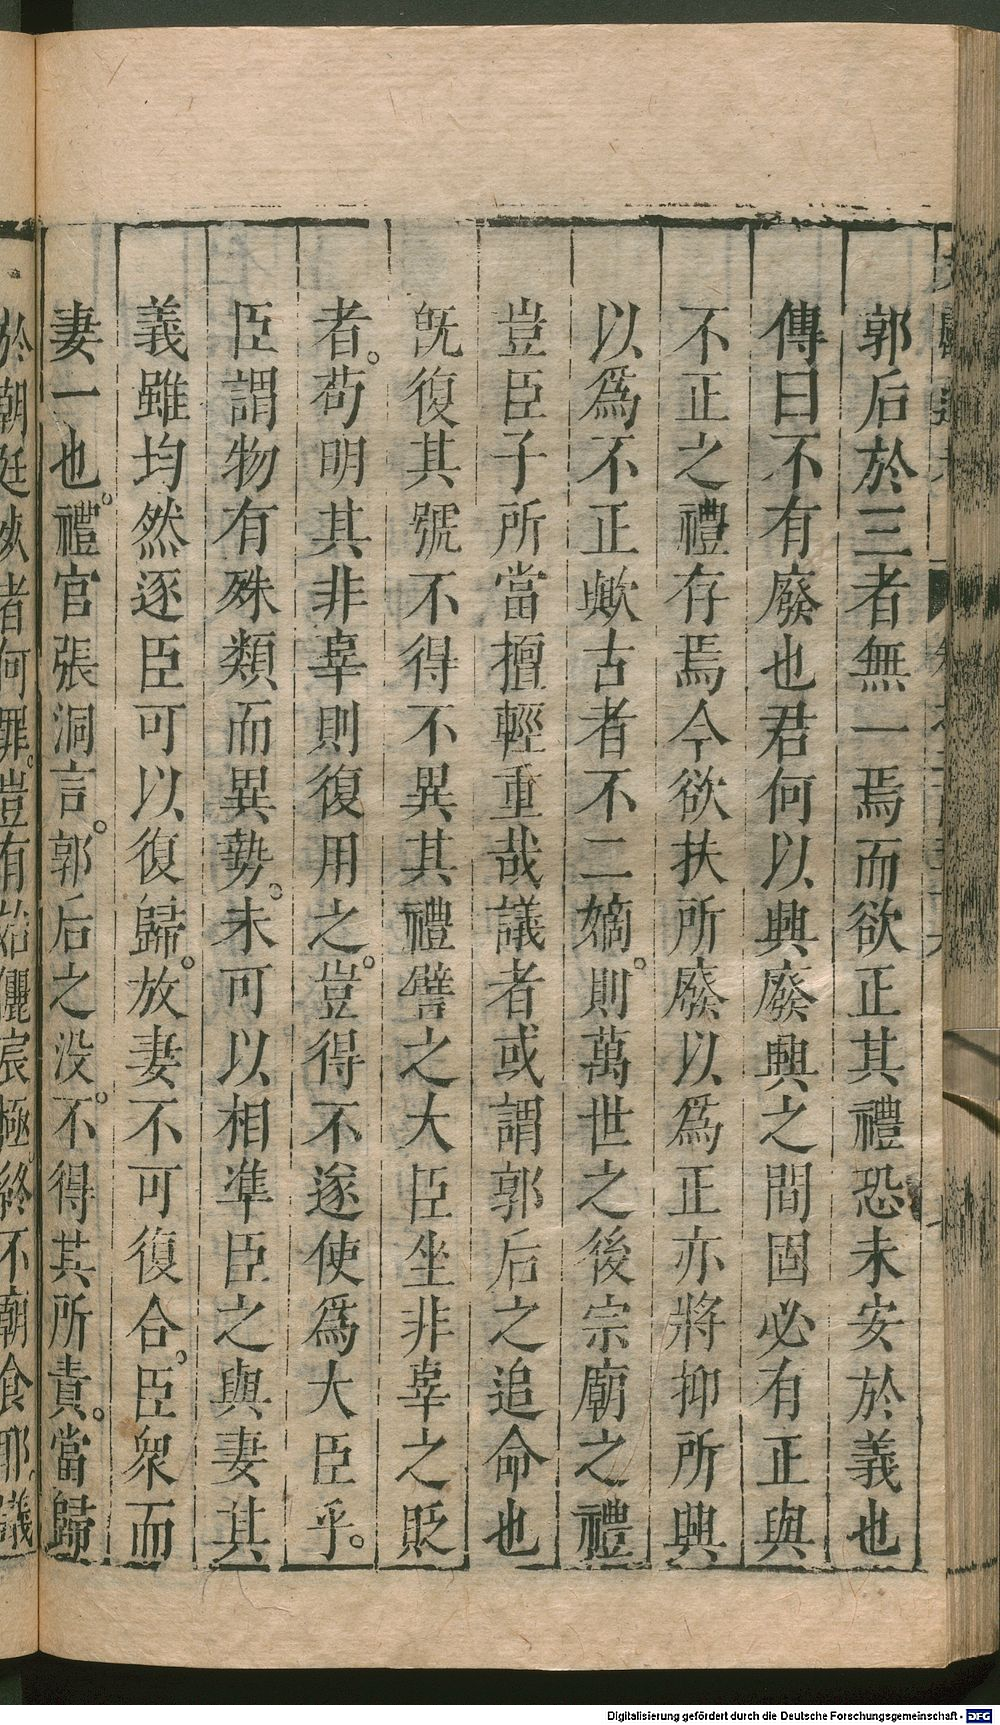 郭后於三者無一焉而欲正其禮恐未安於義也
傳曰不有廢也君何以興廢興之間固必有正與
不正之禮存焉今欲扶所廢以為正亦將抑所興
以為不正歟古者不二嫡。則萬世之後宗廟之禮
豈臣子所當擅輕重哉議者或謂郭后之追命也
旣復其號不得不異其禮譬之大臣坐非辜之貶
者。苟明其非辜則復用之。豈得不遂使為大臣乎。
臣謂物有殊類而異勢。未可以相準臣之與妻其
義雖均然逐臣可以復歸。放妻不可復合。臣衆而
妻一也。禮官張洞言。郭后之没。不得其所責。當歸
於朝廷死者何罪。豈有始儷宸極。終不廟食耶。議
Digitalisierung gefördert durch die Deutsche Forschungsgemeinschaft - DFG